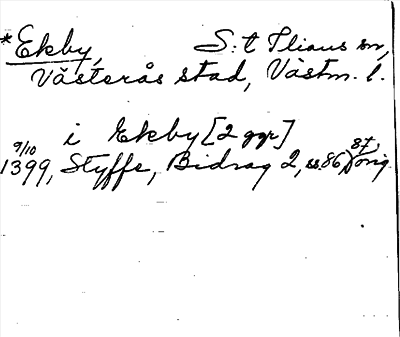 *Ekby, S:t Ilians sn,
Västerås stad, Västm. l.
i Ekby [2 ggr]
9/10 1399, Styffe, Bidrag 2, ss. 86 87, orig.